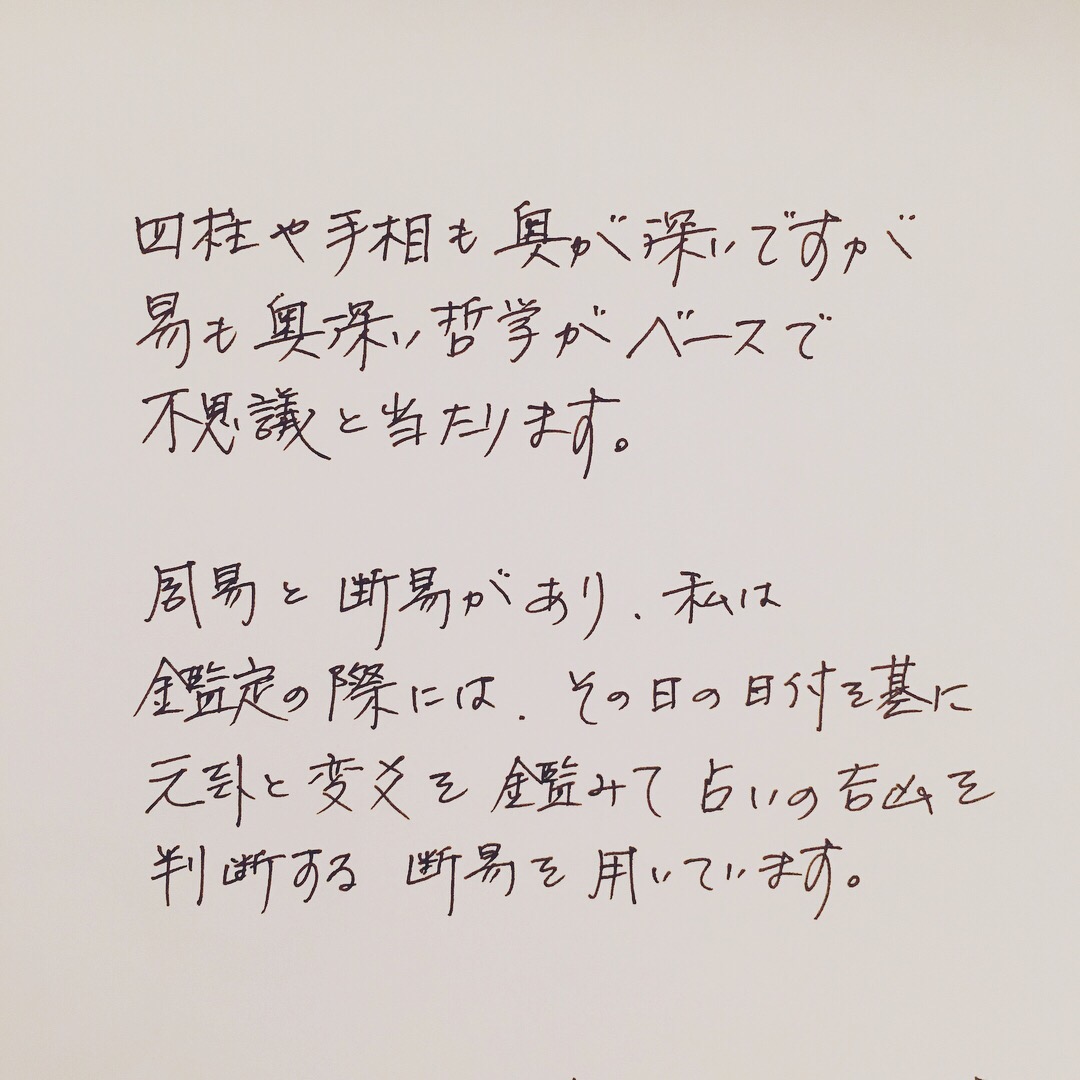 四柱や手相も奥が深いですが
易も奥深い哲学がベースで
不思議と当たります。
周易と断易があり、私は
鑑定の際には、その日の日付を基に
元卦と変爻を鑑みて占いの吉凶を
判断する断易を用いています。